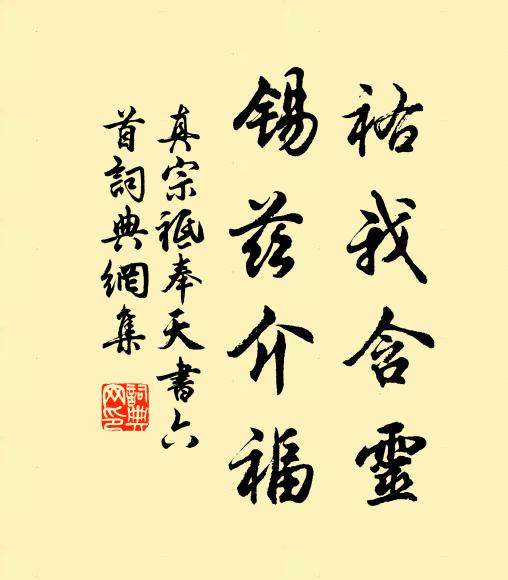 祐我含靈
錫茲介福
真宗祗奉天書六
首詞典網集
詞典網印